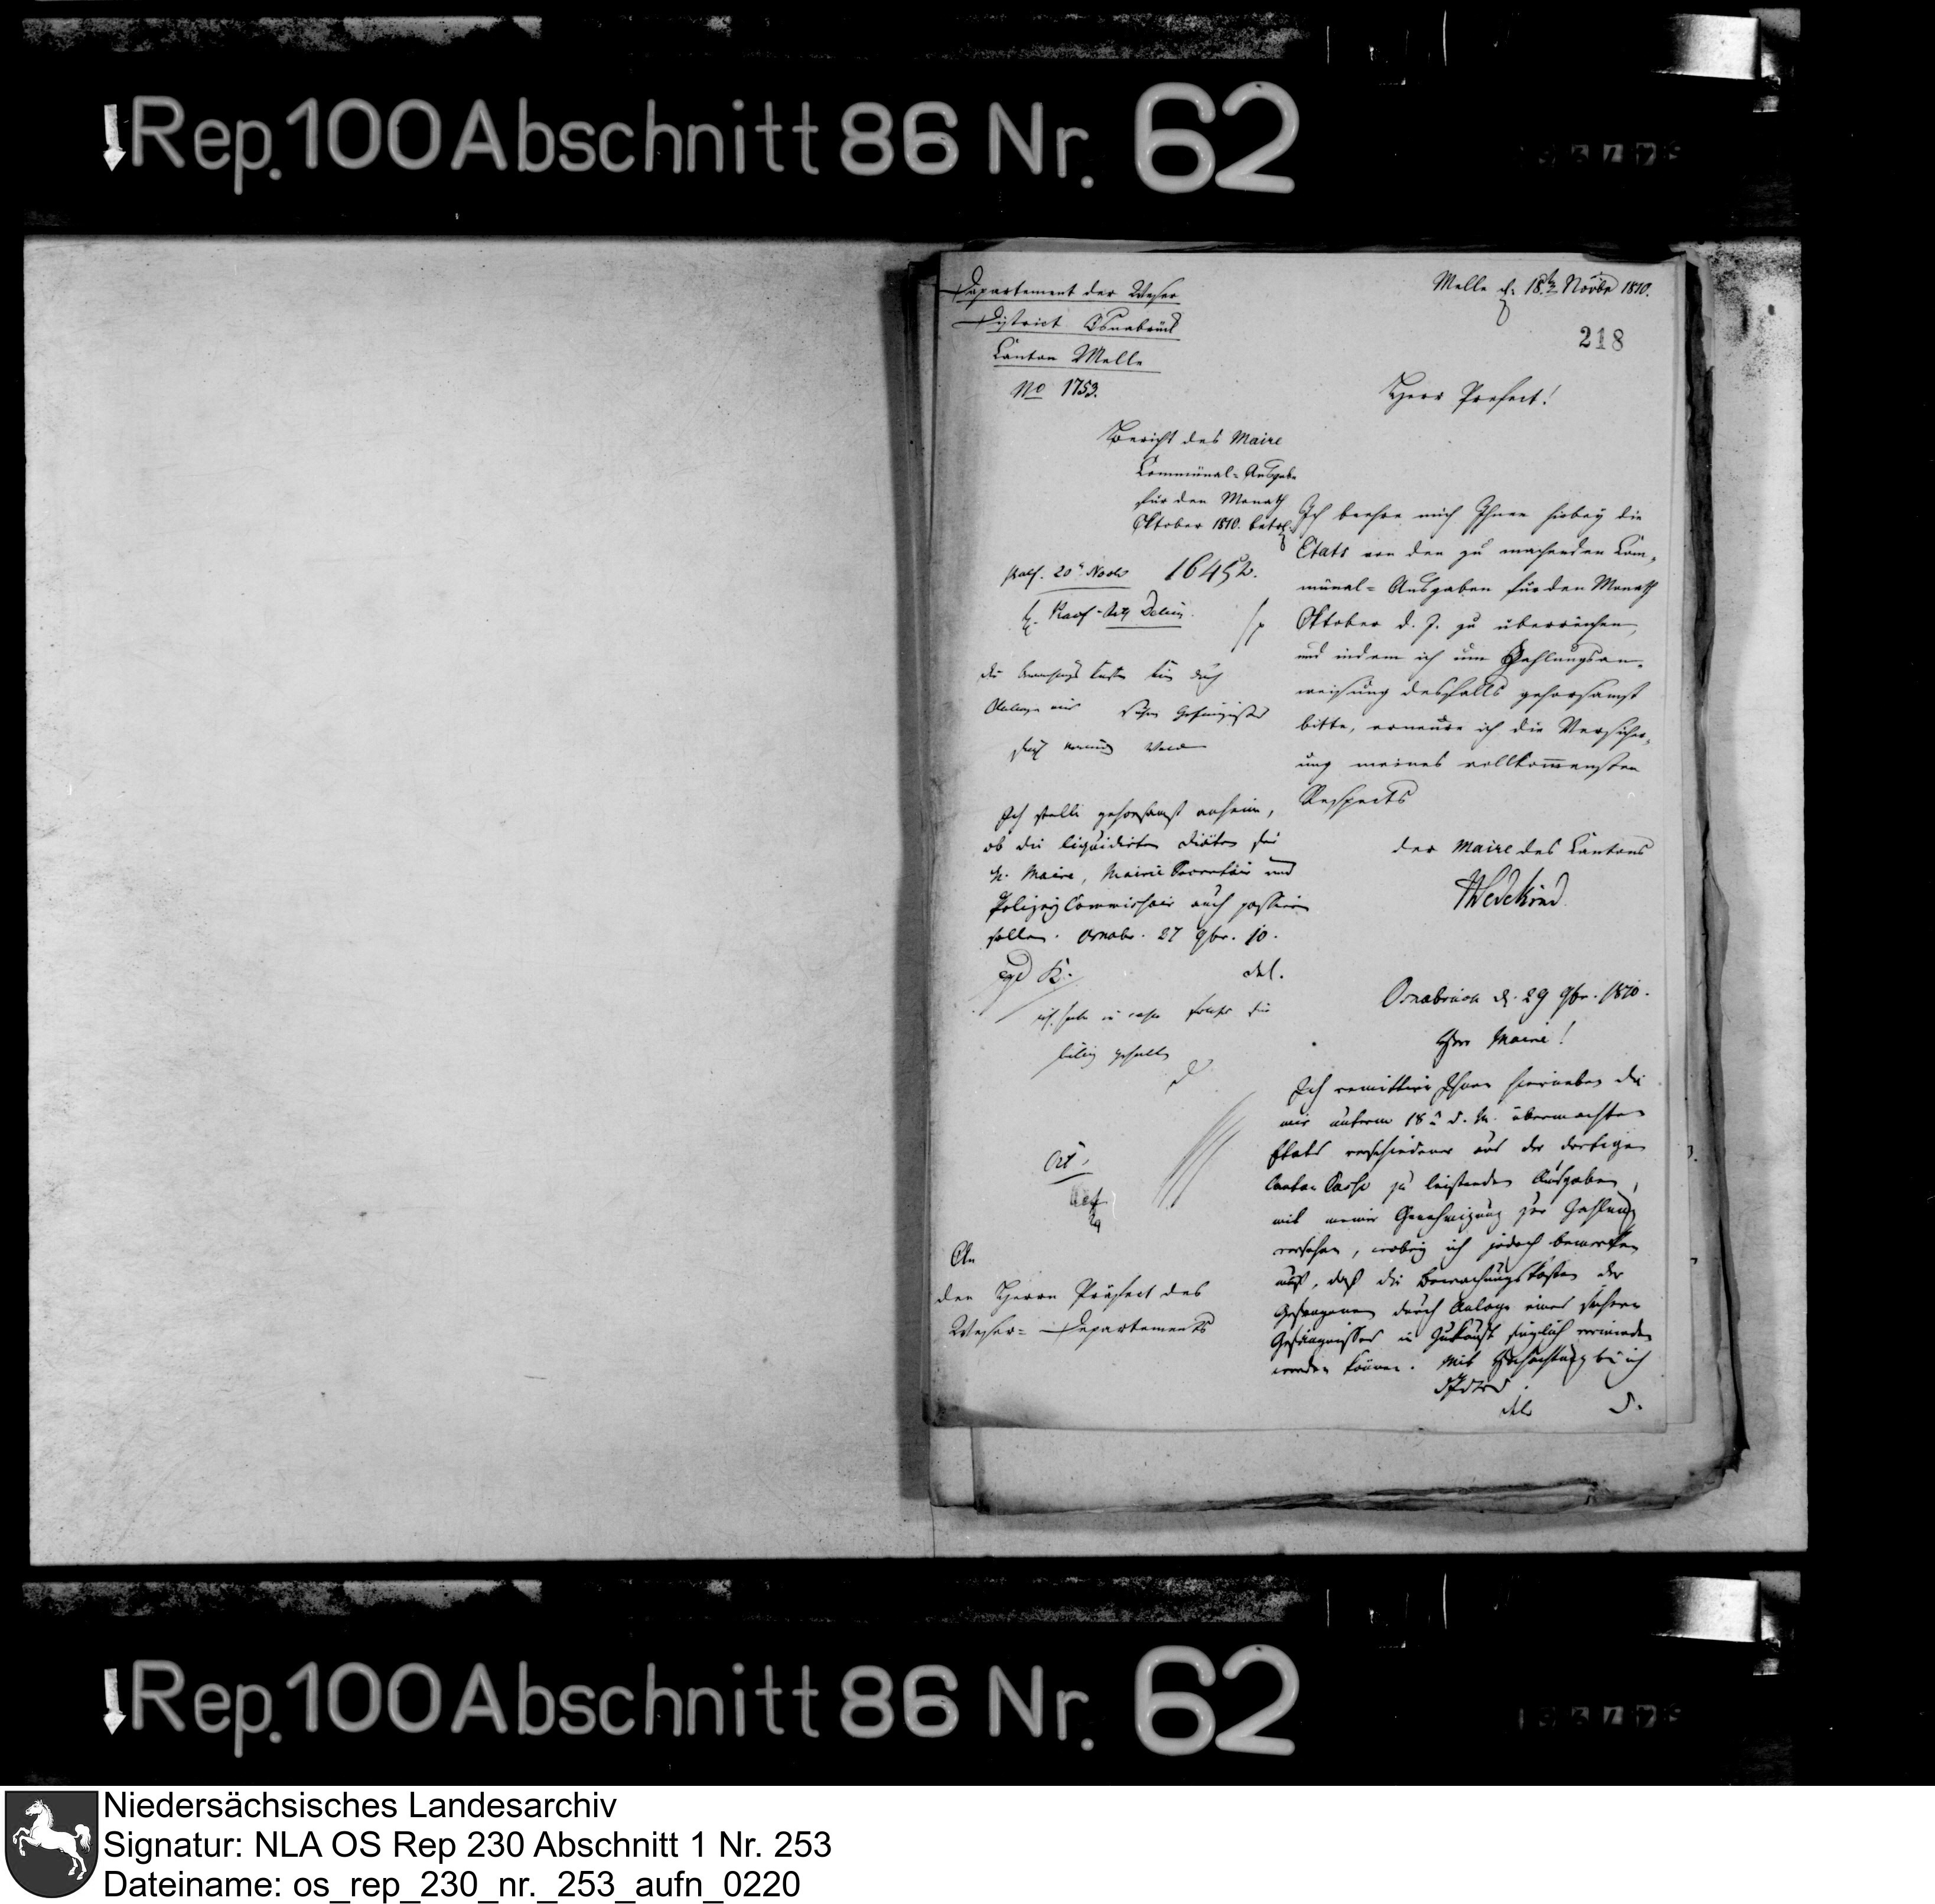 Rep. 100 Abschnitt 86 Nr. 62
Departement der Weser
District Osnabrück
Canton Melle
No 1753.
Melle d. 18ten Novbr 1810.
218
Herr Prefect!
Bericht des Maire
Communal-Ausgabe
für den Monath
Oktober 1810. betr.
praes. 20. Novbr 16452.
die Bewachungs Kosten
Anlage eines sichern Gefängnisses
Ich stelle gehorsamst anheim,
ob die liquidirten Diäten für
H. Maire, Mairie Secretair und
Polizey Commissair auch passiren
sollen. Osnabr. 27 9br. 10.
Ich beehre mich Ihnen hiebey die
Etats von den zu machenden Com-
munal-Ausgaben für den Monath
Oktober d. J. zu überreichen,
und indem ich um Zahlungsan-
weisung desfalls gehorsamst
bitte, erneure ich die Versicher-
ung meines vollkommensten
Respects
der Maire des Cantons
Wedekind
Osnabrück d. 29 9br. 1810.
Herr Maire!
Ich remittire Ihnen hierneben die
mir unterm 18n d. M. übermachten
Etats verschiedener aus der dortigen
Canton Casse zu leistenden Ausgaben,
mit meiner Genehmigung zur Zahlung
versehen, wobey ich jedoch bemerken
muß, daß die Bewachungskosten der
Gefangenen durch Anlage eines sichern
Gefängnisses in Zukunft füglich vermieden
werden können. Mit Hochachtung bin ich
An
den Herrn Präfect des
Weser-Departements
Rep. 100 Abschnitt 86 Nr. 62
Niedersächsisches Landesarchiv
Signatur: NLA OS Rep 230 Abschnitt 1 Nr. 253
Dateiname: os_rep_230_nr._253_aufn_0220